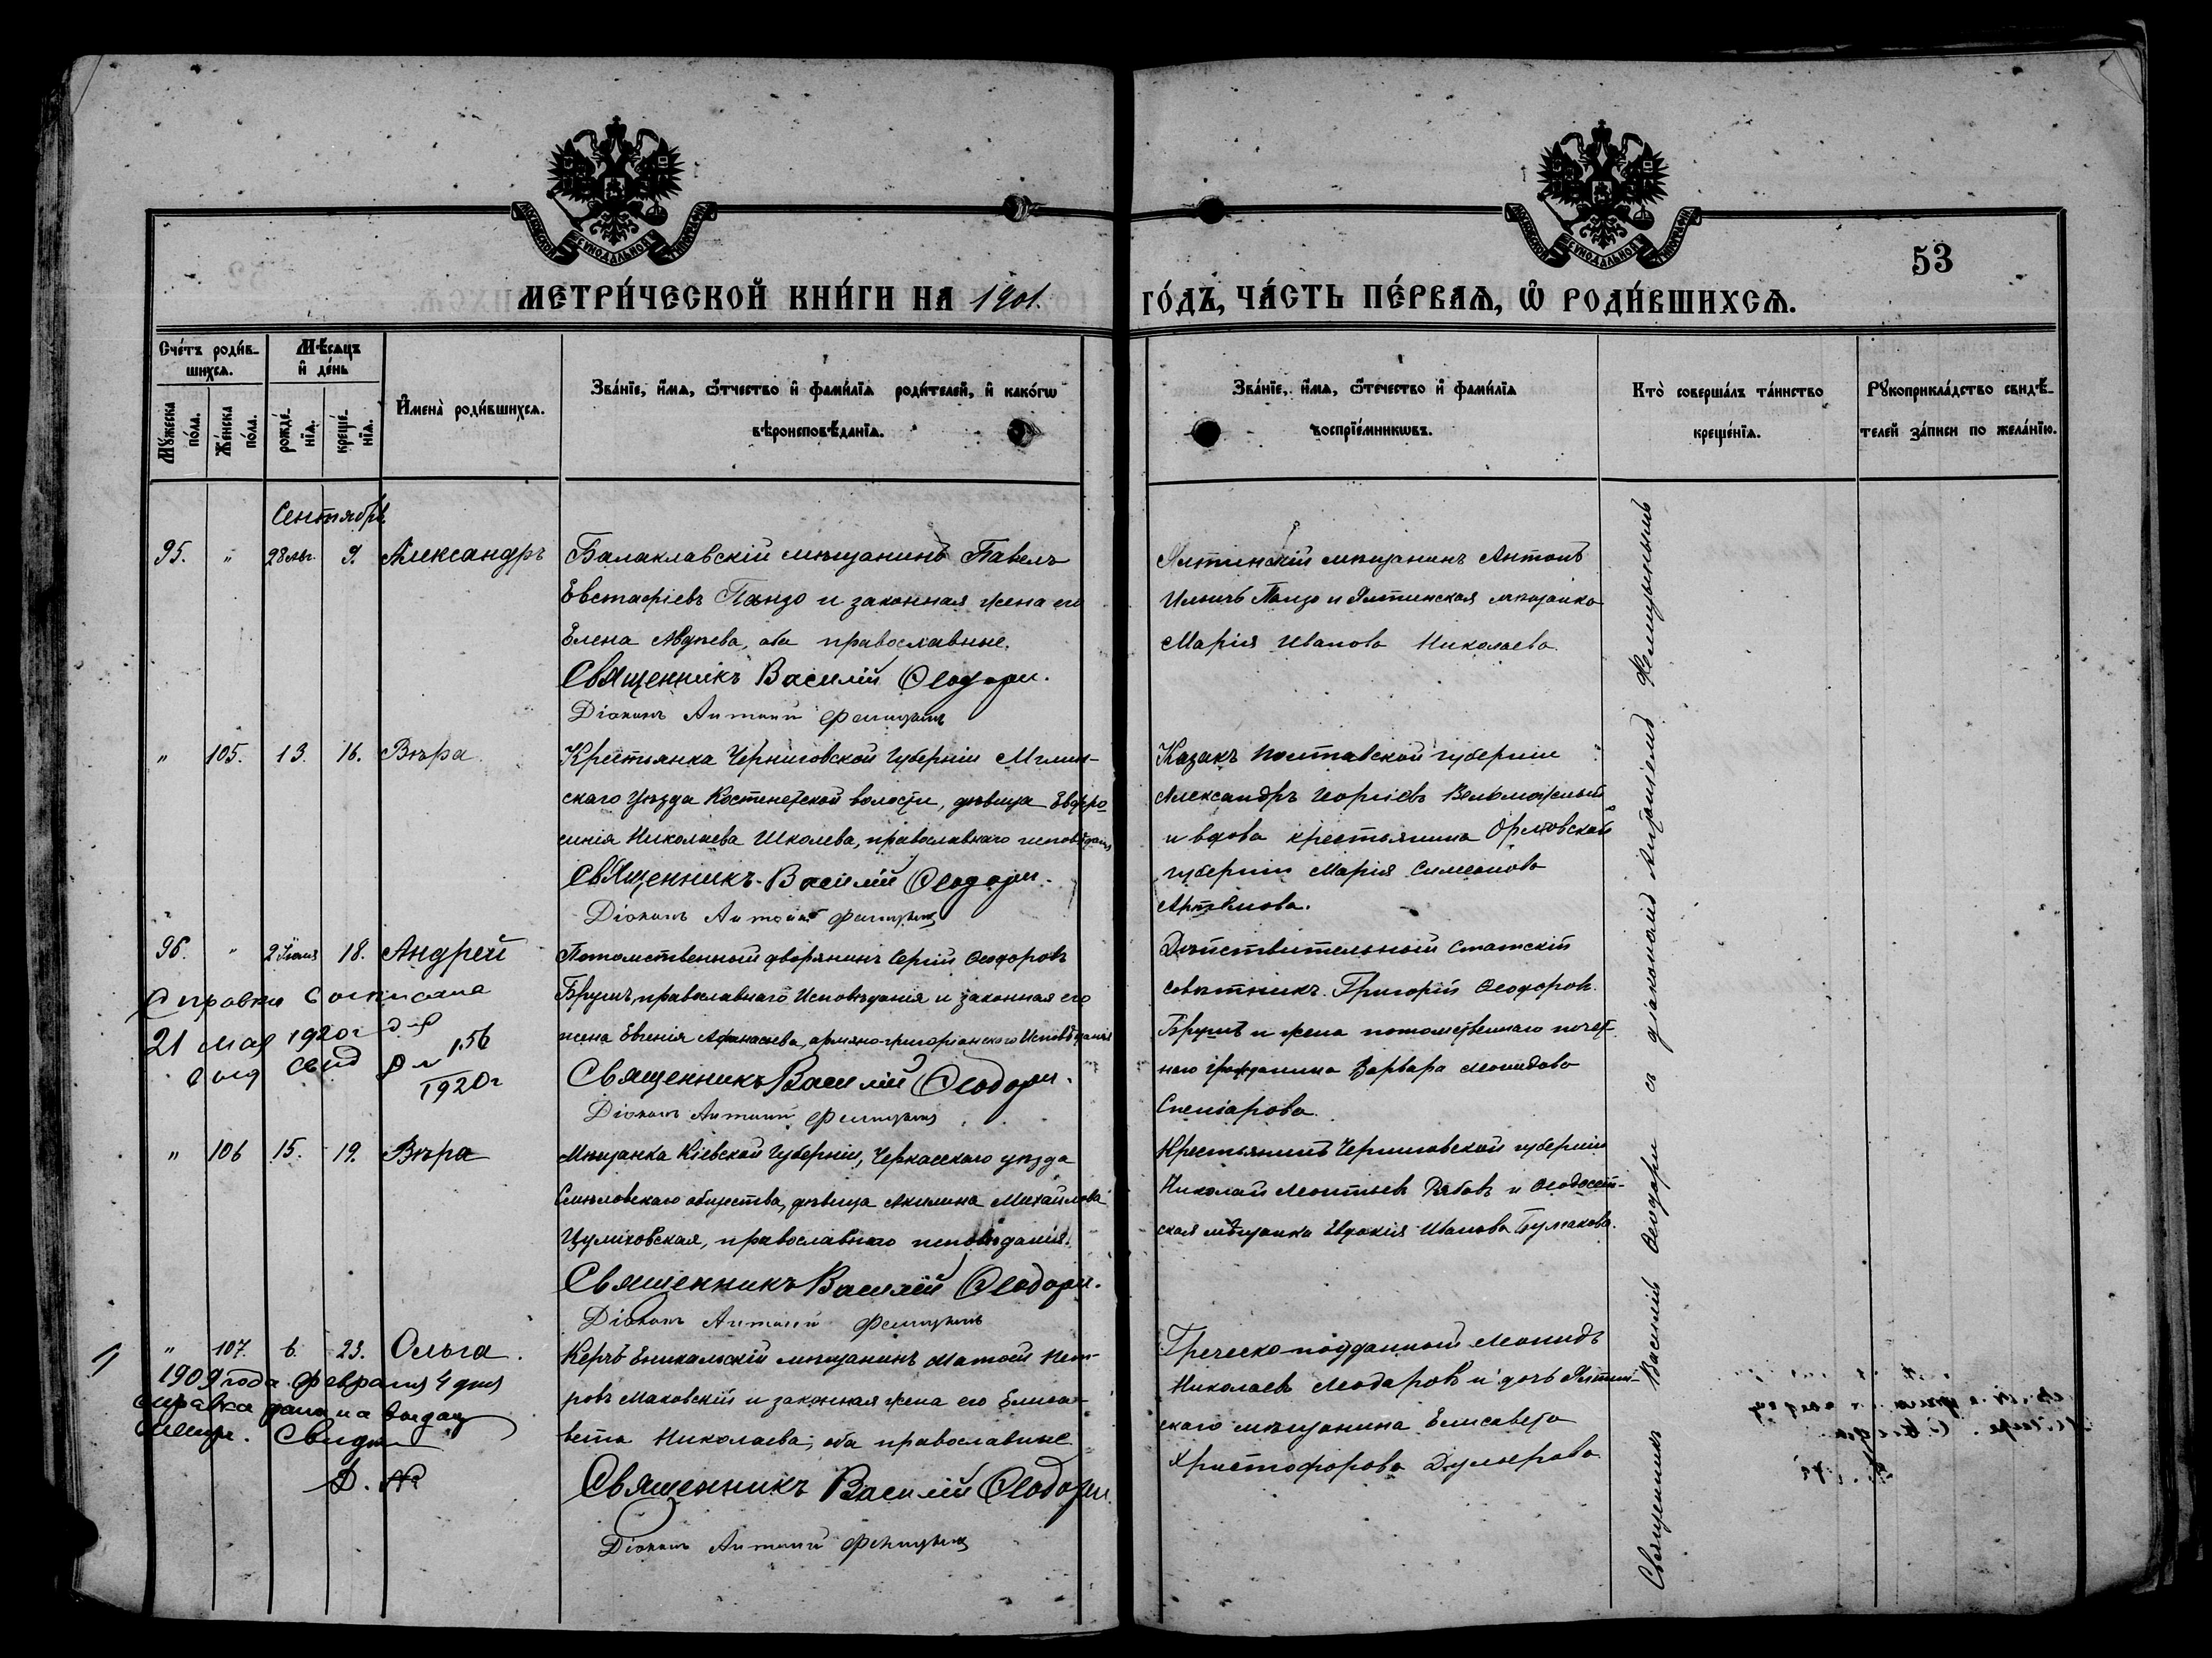 МЕТРИ́ЧЕСКОЙ КНИ́ГИ НА 1901.
ГО́ДЪ, ЧА́СТЬ ПЕ́РВАѦ, Ѡ РОДИ́ВШИХСѦ.
53
Сче́тъ роди́в-
шихсѧ.
Мѣ́сѧцъ
и де́нь
Мꙋжеска
по́ла.
Же́нска
по́ла.
рожде́-
нїѧ.
креще́-
нїѧ.
И҆мена̀ роди́вшихсѧ.
Зва́нїе, и҆́мѧ, ѻ҆́тчество и҆ фами́лїѧ роди́телей, и҆ како́гѡ
вѣроисповѣ́данїѧ.
Зва́нїе, и҆́мѧ, ѻ҆́течество и҆ фами́лїѧ
воспрїе́мникѡвъ.
Кто̀ соверша́лъ та́инство
креще́нїѧ.
Рꙋкоприкла́дство свидѣ́-
телей за́писи по жела́нїю.
Сентябрь
95. " 28 Авг. 9. Александръ
Балаклавскій мѣщанинъ Павелъ
Евстафіевъ Панзо и законная жена его
Елена Авдѣева, оба православные.
Священникъ Василій Ѳеодори.
Діаконъ Антоній
Ялтинскій мѣщанинъ Антонъ
Ильичъ Панзо и Ялтинская мѣщанка
Марія Иванова Николаева.
" 105. 13. 16. Вѣра
Крестьянка Черниговской Губерніи Мглин-
скаго Уѣзда Костинетской волости, дѣвица Евфро
синія Николаева Школева, православнаго исповѣданія
Священникъ Василій Ѳеодори.
Діаконъ Антоній
Казакъ Полтавской губерніи
Александръ Георгіевъ Вельможный
и вдова крестьянина Орловской
губерніи Марія Симеонова
Артемова.
96. " 2 Іюля 18. Андрей
Потомственный дворянинъ Сергій Ѳеодоровъ
Брунъ, православнаго Исповѣданія и законная его
жена Евгенія Афанасьева, армяно-григоріанскаго Исповѣданія
Священникъ Василій Ѳеодори.
Діаконъ Антоній
Справка
21 мая 1920 г
свид 156
1920 г
Дѣйствительный Статскій
совѣтникъ Григорій Ѳеодоров.
Брунъ и жена потомственнаго почет-
наго гражданина Варвара Леонидова
Спендіарова.
" 106 15. 19. Вѣра
Мѣщанка Кіевской Губерніи, Черкасскаго уѣзда
Смѣловскаго общества, дѣвица Акилина Михайлова
Цулиховская, православнаго исповѣданія.
Священникъ Василій Ѳеодори.
Діаконъ Антоній
Крестьянинъ Черниговской губерніи
Николай Леонтьевъ Рябовъ и Ѳеодосій-
ская мѣщанка Евдокія Иванова Булгакова.
" 107. 6. 23. Ольга.
Керчь Еникальскій мѣщанинъ Матѳей Пет-
ровъ Маковскій и законная жена его Елиса-
вета Николаева, оба православные
Священникъ Василій Ѳеодори.
Діаконъ Антоній
1909 года февраля 4 дня
справка дана на выдачу
Свид
Д. №
Греческо-подданный Леонидъ
Николаевъ Леодаровъ и дочь Ялтин-
скаго мѣщанина Елисавета
Христофорова
Священникъ Василій Ѳеодори съ діакономъ Антоніемъ